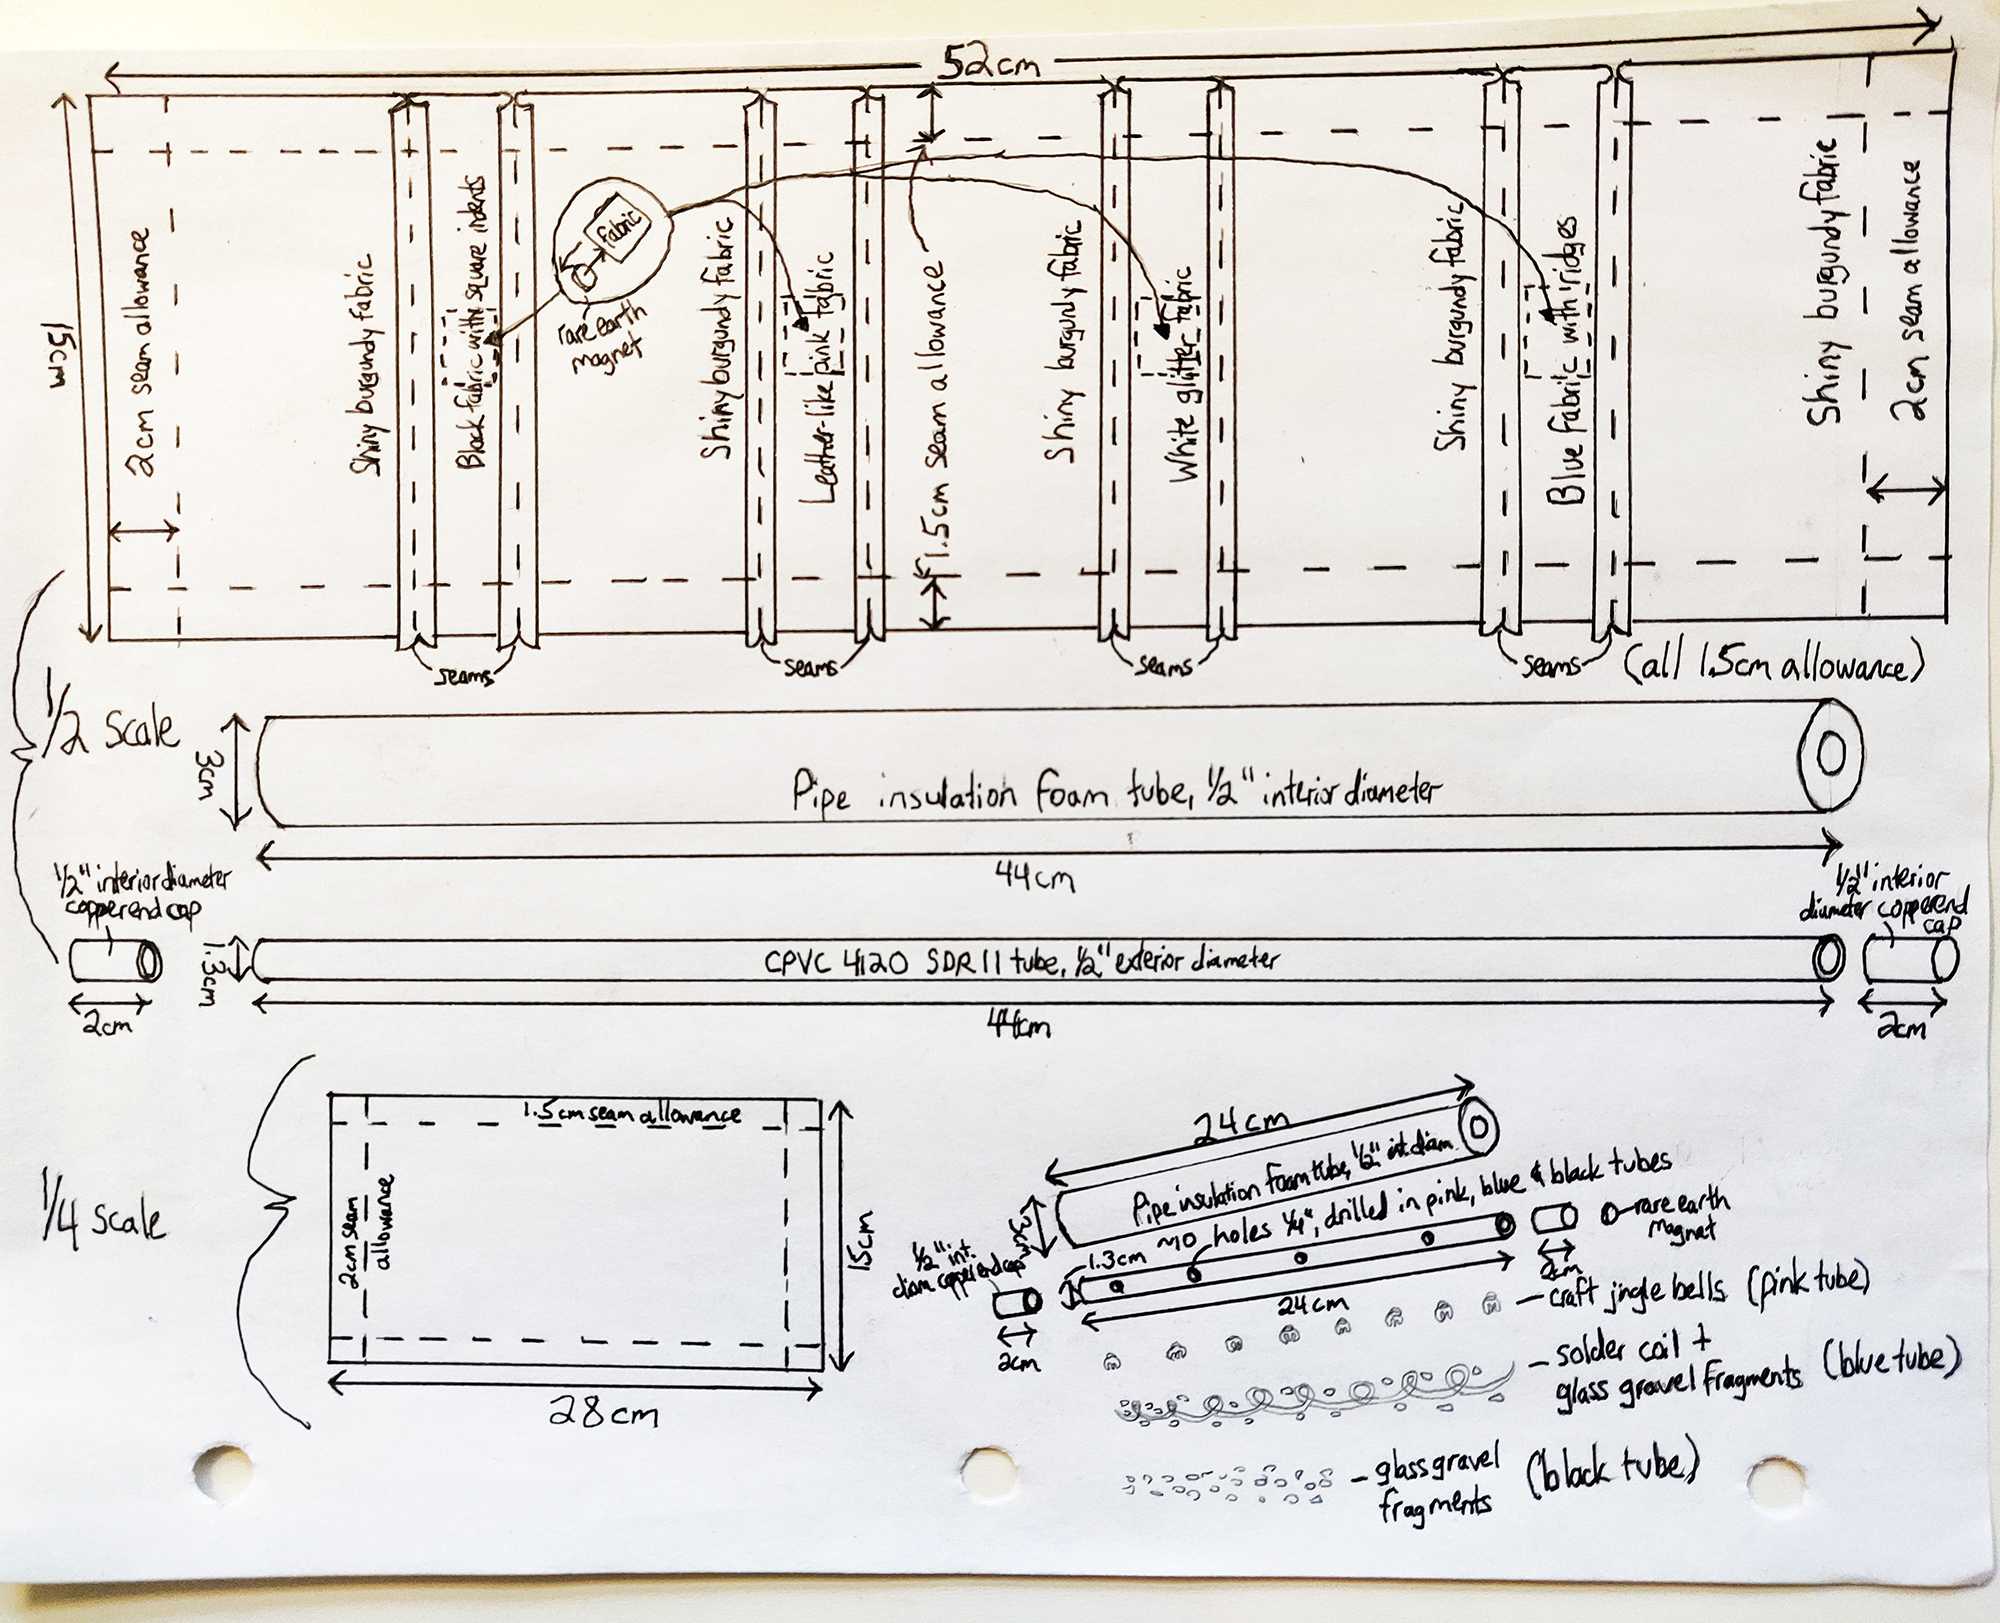 52cm
15cm
2cm seam allowance
Shiny burgundy fabric
Black fabric with square indents
fabric
rare earth
magnet
Shiny burgundy fabric
Leather-like pink fabric
1.5cm seam allowance
Shiny burgundy fabric
White glitter fabric
Shiny burgundy fabric
Blue fabric with ridges
Shiny burgundy fabric
2cm seam allowance
seams
seams
seams
seams
(all 1.5cm allowance)
1/2 scale
3cm
Pipe insulation foam tube, 1/2" interior diameter
44cm
1/2" interior diameter
copper end cap
2cm
1.3cm
CPVC 4120 SDR 11 tube, 1/2" exterior diameter
44cm
1/2" interior
diameter copper end
cap
2cm
1/4 scale
1.5cm seam allowance
2cm seam
allowance
15cm
28cm
24cm
Pipe insulation foam tube, 1/2" int. diam.
3cm
holes 1/4", drilled in pink, blue & black tubes
1/2" int.
diam. copper end cap
1.3cm
2cm
24cm
2cm
rare earth
magnet
craft jingle bells (pink tube)
solder coil +
glass gravel fragments (blue tube)
glass gravel
fragments (black tube)